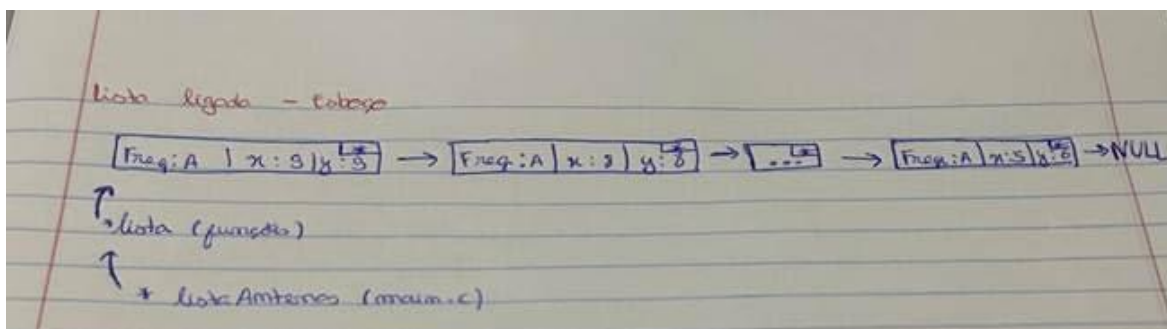 Lista ligada - cabeça
Freq: A | x: 9 | y: 9 → Freq: A | x: 8 | y: 8 → ... → Freq: A | x: 5 | y: 6 → NULL
*lista (função)
* listaAntenas (main.c)